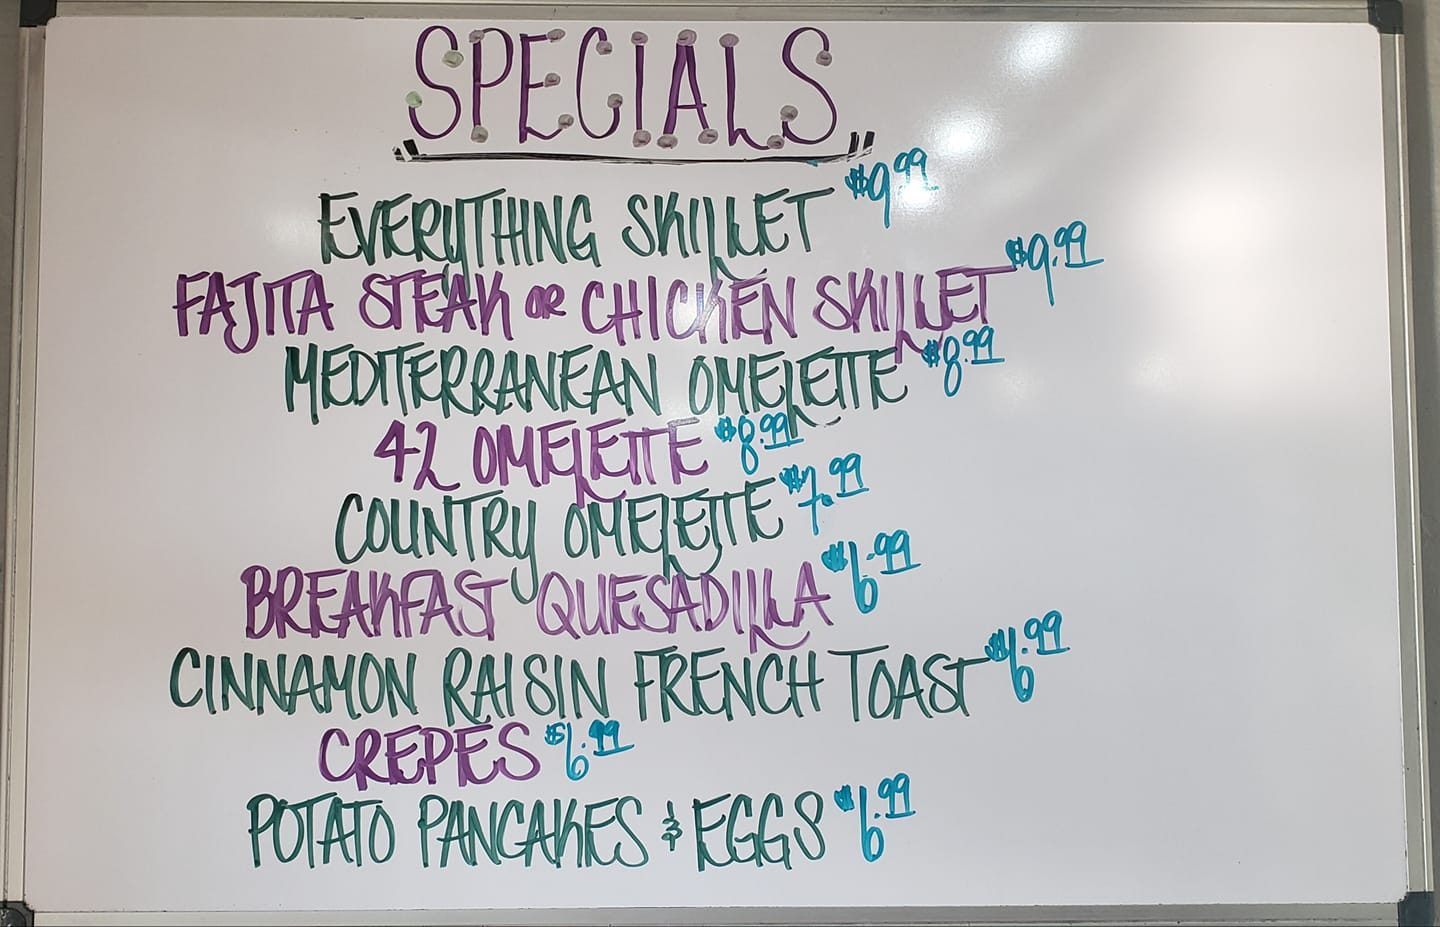 SPECIALS
EVERYTHING SKILLET $9.99
FAJITA STEAK OR CHICKEN SKILLET $9.99
MEDITERRANEAN OMELETTE $8.99
42 OMELETTE $8.99
COUNTRY OMELETTE $7.99
BREAKFAST QUESADILLA $6.99
CINNAMON RAISIN FRENCH TOAST $6.99
CREPES $6.99
POTATO PANCAKES & EGGS $6.99